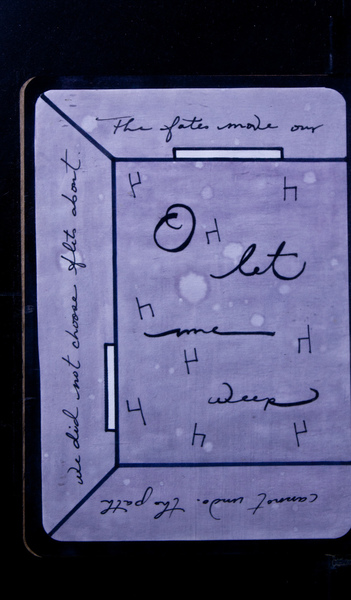 The fates move our
O
let
me
weep
cannot undo. The path
we did not choose flits about.